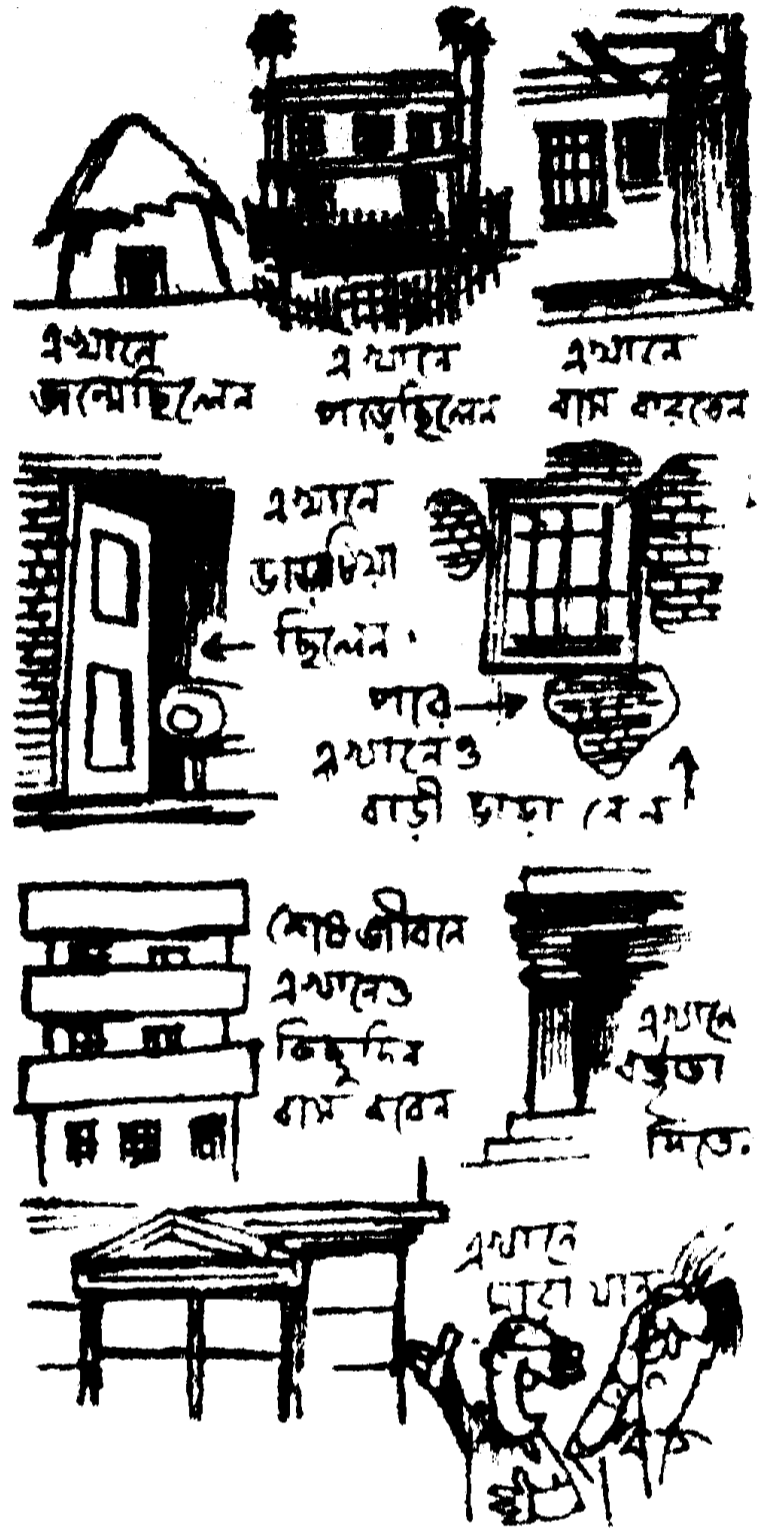 এখানে
জন্মেছিলেন
এখানে
পড়েছিলেন
এখানে
বাস করতেন
এখানে
ভাড়াটিয়া
ছিলেন
পরে
এখানেও
বাড়ী ভাড়া নেন
শেষ জীবনে
এখানেও
কিছুদিন
বাস করেন
এখানে
বক্তৃতা
দিতেন
এখানে
মারা যান